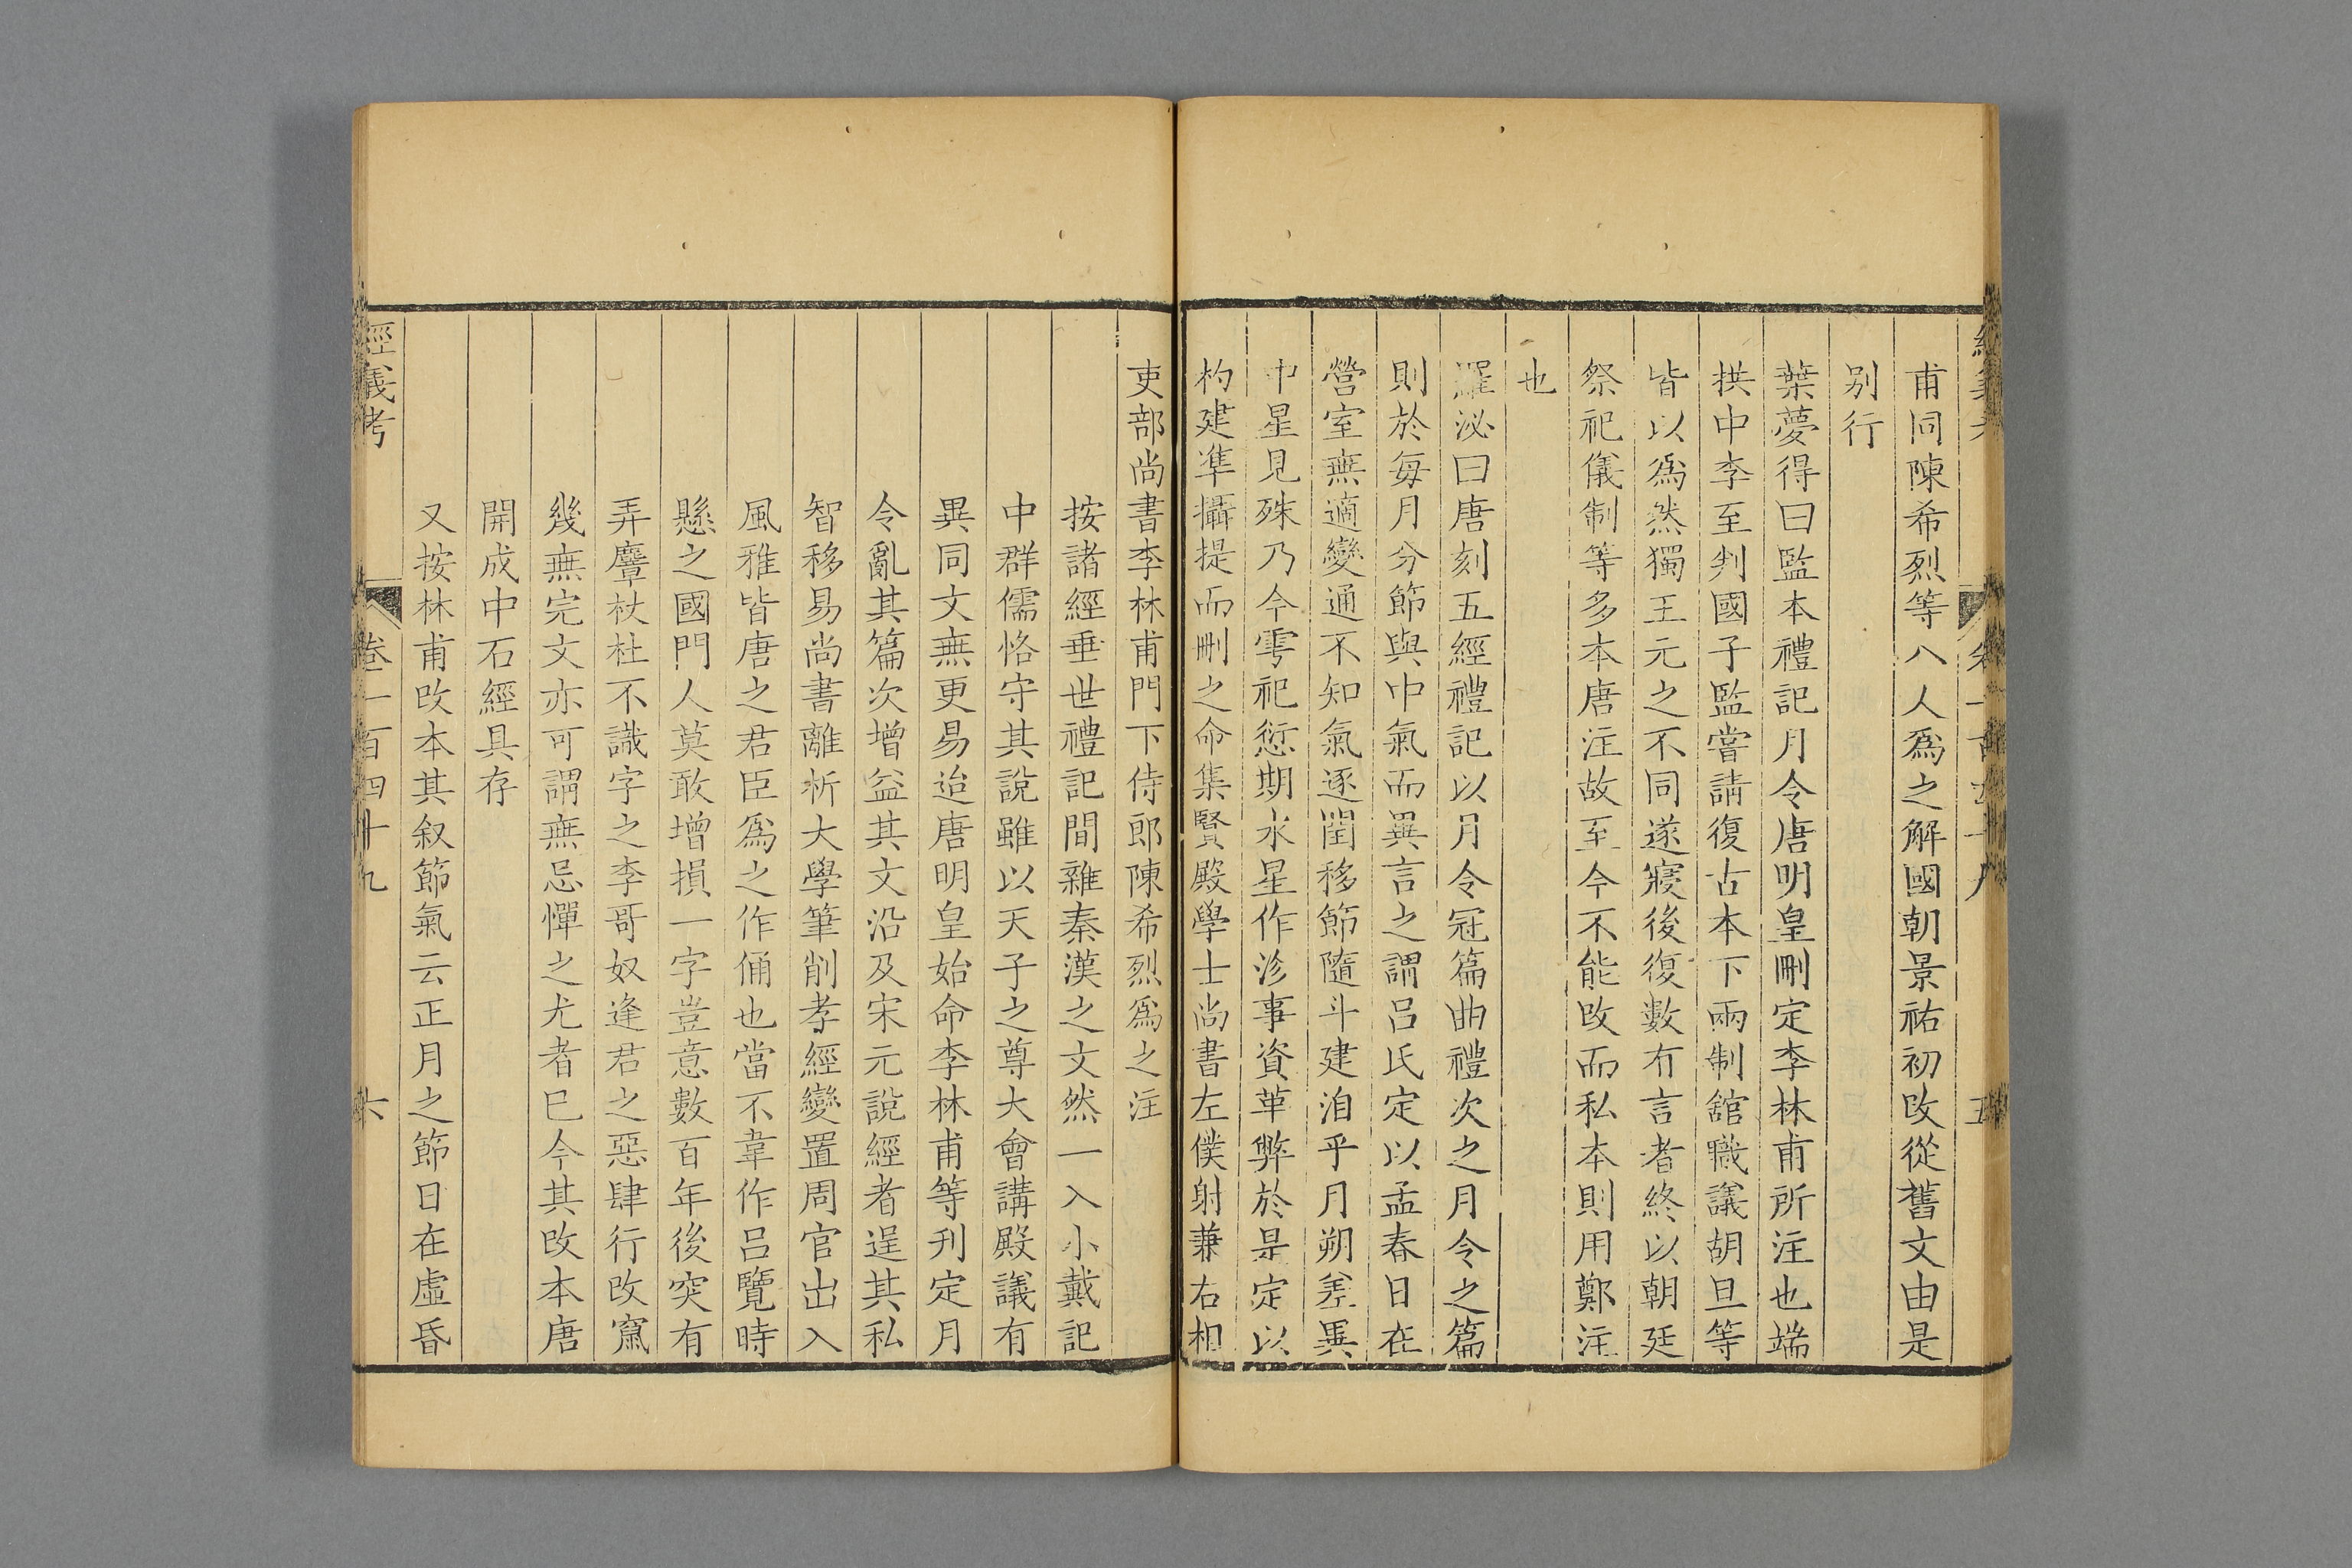 甫同陳希烈等八人爲之解國朝景祐初改從舊文由是
别行
葉夢得曰監本禮記月令唐明皇刪定李林甫所注也端
拱中李至判國子監嘗請復古本下兩制舘職議胡旦等
皆以爲然獨王元之不同遂寢後復數有言者終以朝廷
祭祀儀制等多本唐注故至今不能改而私本則用鄭注
也
羅泌曰唐刻五經禮記以月令冠篇曲禮次之月令之篇
則於每月分節與中氣而異言之謂呂氏定以孟春日在
營室無適變通不知氣逐閏移節隨斗建洎乎月朔差異
中星見殊乃令雩祀愆期水星作沴事資革弊於是定以
杓建準攝提而刪之命集賢殿學士尚書左僕射兼右相
吏部尚書李林甫門下侍郎陳希烈爲之注
按諸經垂世禮記間雜秦漢之文然一入小戴記
中群儒恪守其說雖以天子之尊大會講殿議有
異同文無更易迨唐明皇始命李林甫等刋定月
令亂其篇次增益其文沿及宋元說經者逞其私
智移易尚書離析大學筆削孝經變置周官出入
風雅皆唐之君臣爲之作俑也當不韋作呂覽時
懸之國門人莫敢增損一字豈意數百年後突有
弄麞杖杜不識字之李哥奴逢君之惡肆行改竄
幾無完文亦可謂無忌憚之尤者已今其改本唐
開成中石經具存
又按林甫改本其叙節氣云正月之節日在虛昏
經義考
卷一百四十九
六